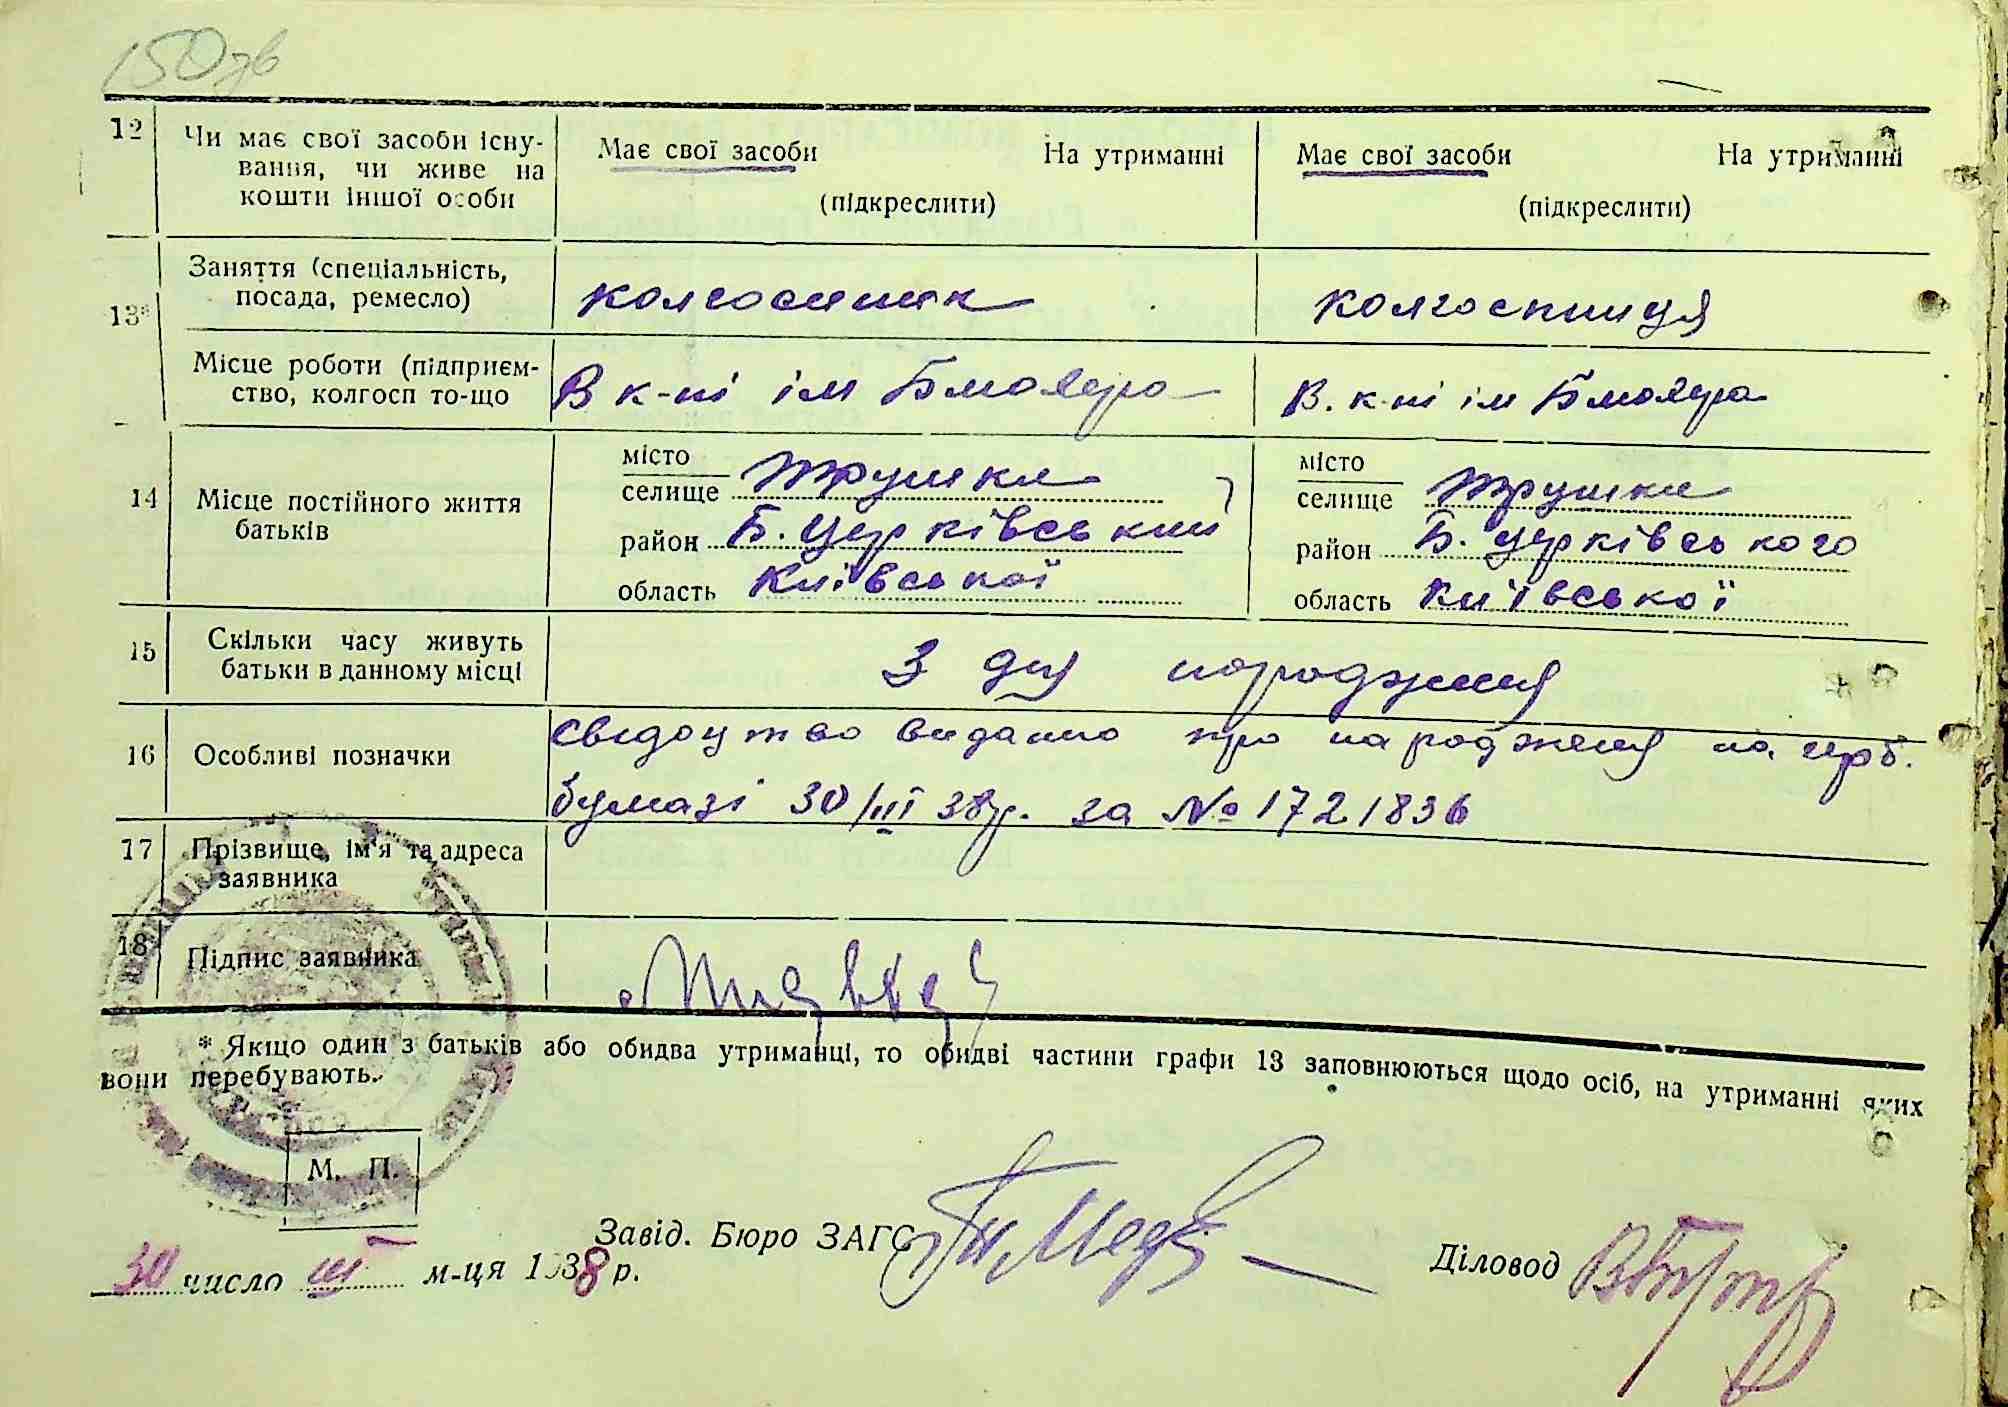 150зв
12 Чи має свої засоби існу-
вання, чи живе на
кошти іншої особи
Має свої засоби На утриманні
(підкреслити)
Має свої засоби На утриманні
(підкреслити)
13*
Заняття (спеціальність,
посада, ремесло)
колгоспник
колгоспниця
Місце роботи (підприєм-
ство, колгосп то-що
В к-пі ім Блюхера
В. к-пі ім Блюхера
14 Місце постійного життя
батьків
місто
селище Трушки
район Б. Церківський
область Київської
місто
селище Трушки
район Б. Церківського
область Київської
15 Скільки часу живуть
батьки в данному місці
З дня народження
16 Особливі позначки
свідоцтво видано про народження на герб.
бумазі 30/III 38р. за № 1721836
17 Прізвище, ім'я та адреса
заявника
18 Підпис заявника
* Якщо один з батьків або обидва утриманці, то обидві частини графи 13 заповнюються щодо осіб, на утриманні яких
вони перебувають.
М. П.
Завід. Бюро ЗАГС
Діловод
30 число III м-ця 1938 р.